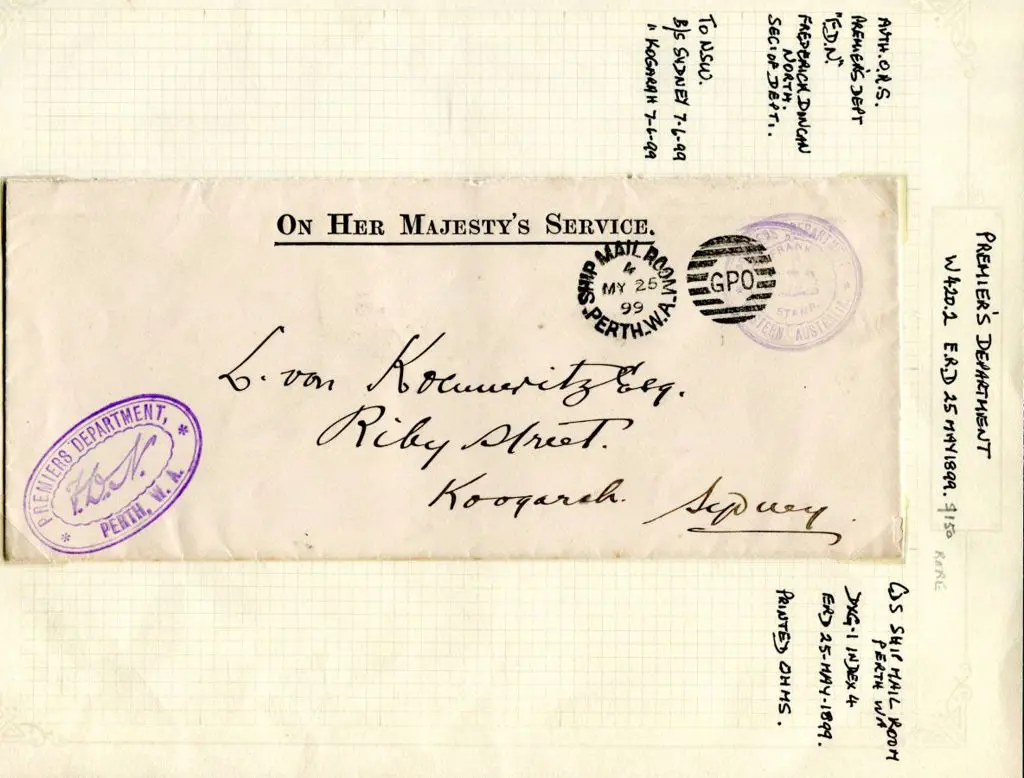 AUTH. O.R.S.
PREMIER'S DEPT
"F.D.N."
FREDERICK DUNCAN
NORTH.
SEC: OF DEPT:.
TO NSW.
B/S SYDNEY 7-6-99
" KOGARAH 7-6-99
ON HER MAJESTY'S SERVICE.
SHIP MAIL ROOM
4
MY 25
99
PERTH.W.A.
GPO
DEPARTMENT
FRANK
STAMP
AUSTRALIA
L. von Koenneritz Esq.
Riby Street.
Koogarah.
Sydney
PREMIERS DEPARTMENT,
F.D.N.
PERTH, W. A.
PREMIER'S DEPARTMENT
W420.2 E.R.D 25 MAY 1899. $150
RARE
CDS SHIP MAIL ROOM
PERTH WA
DXG-1 INDEX 4
ERD 25-MAY-1899.
PRINTED OHMS.